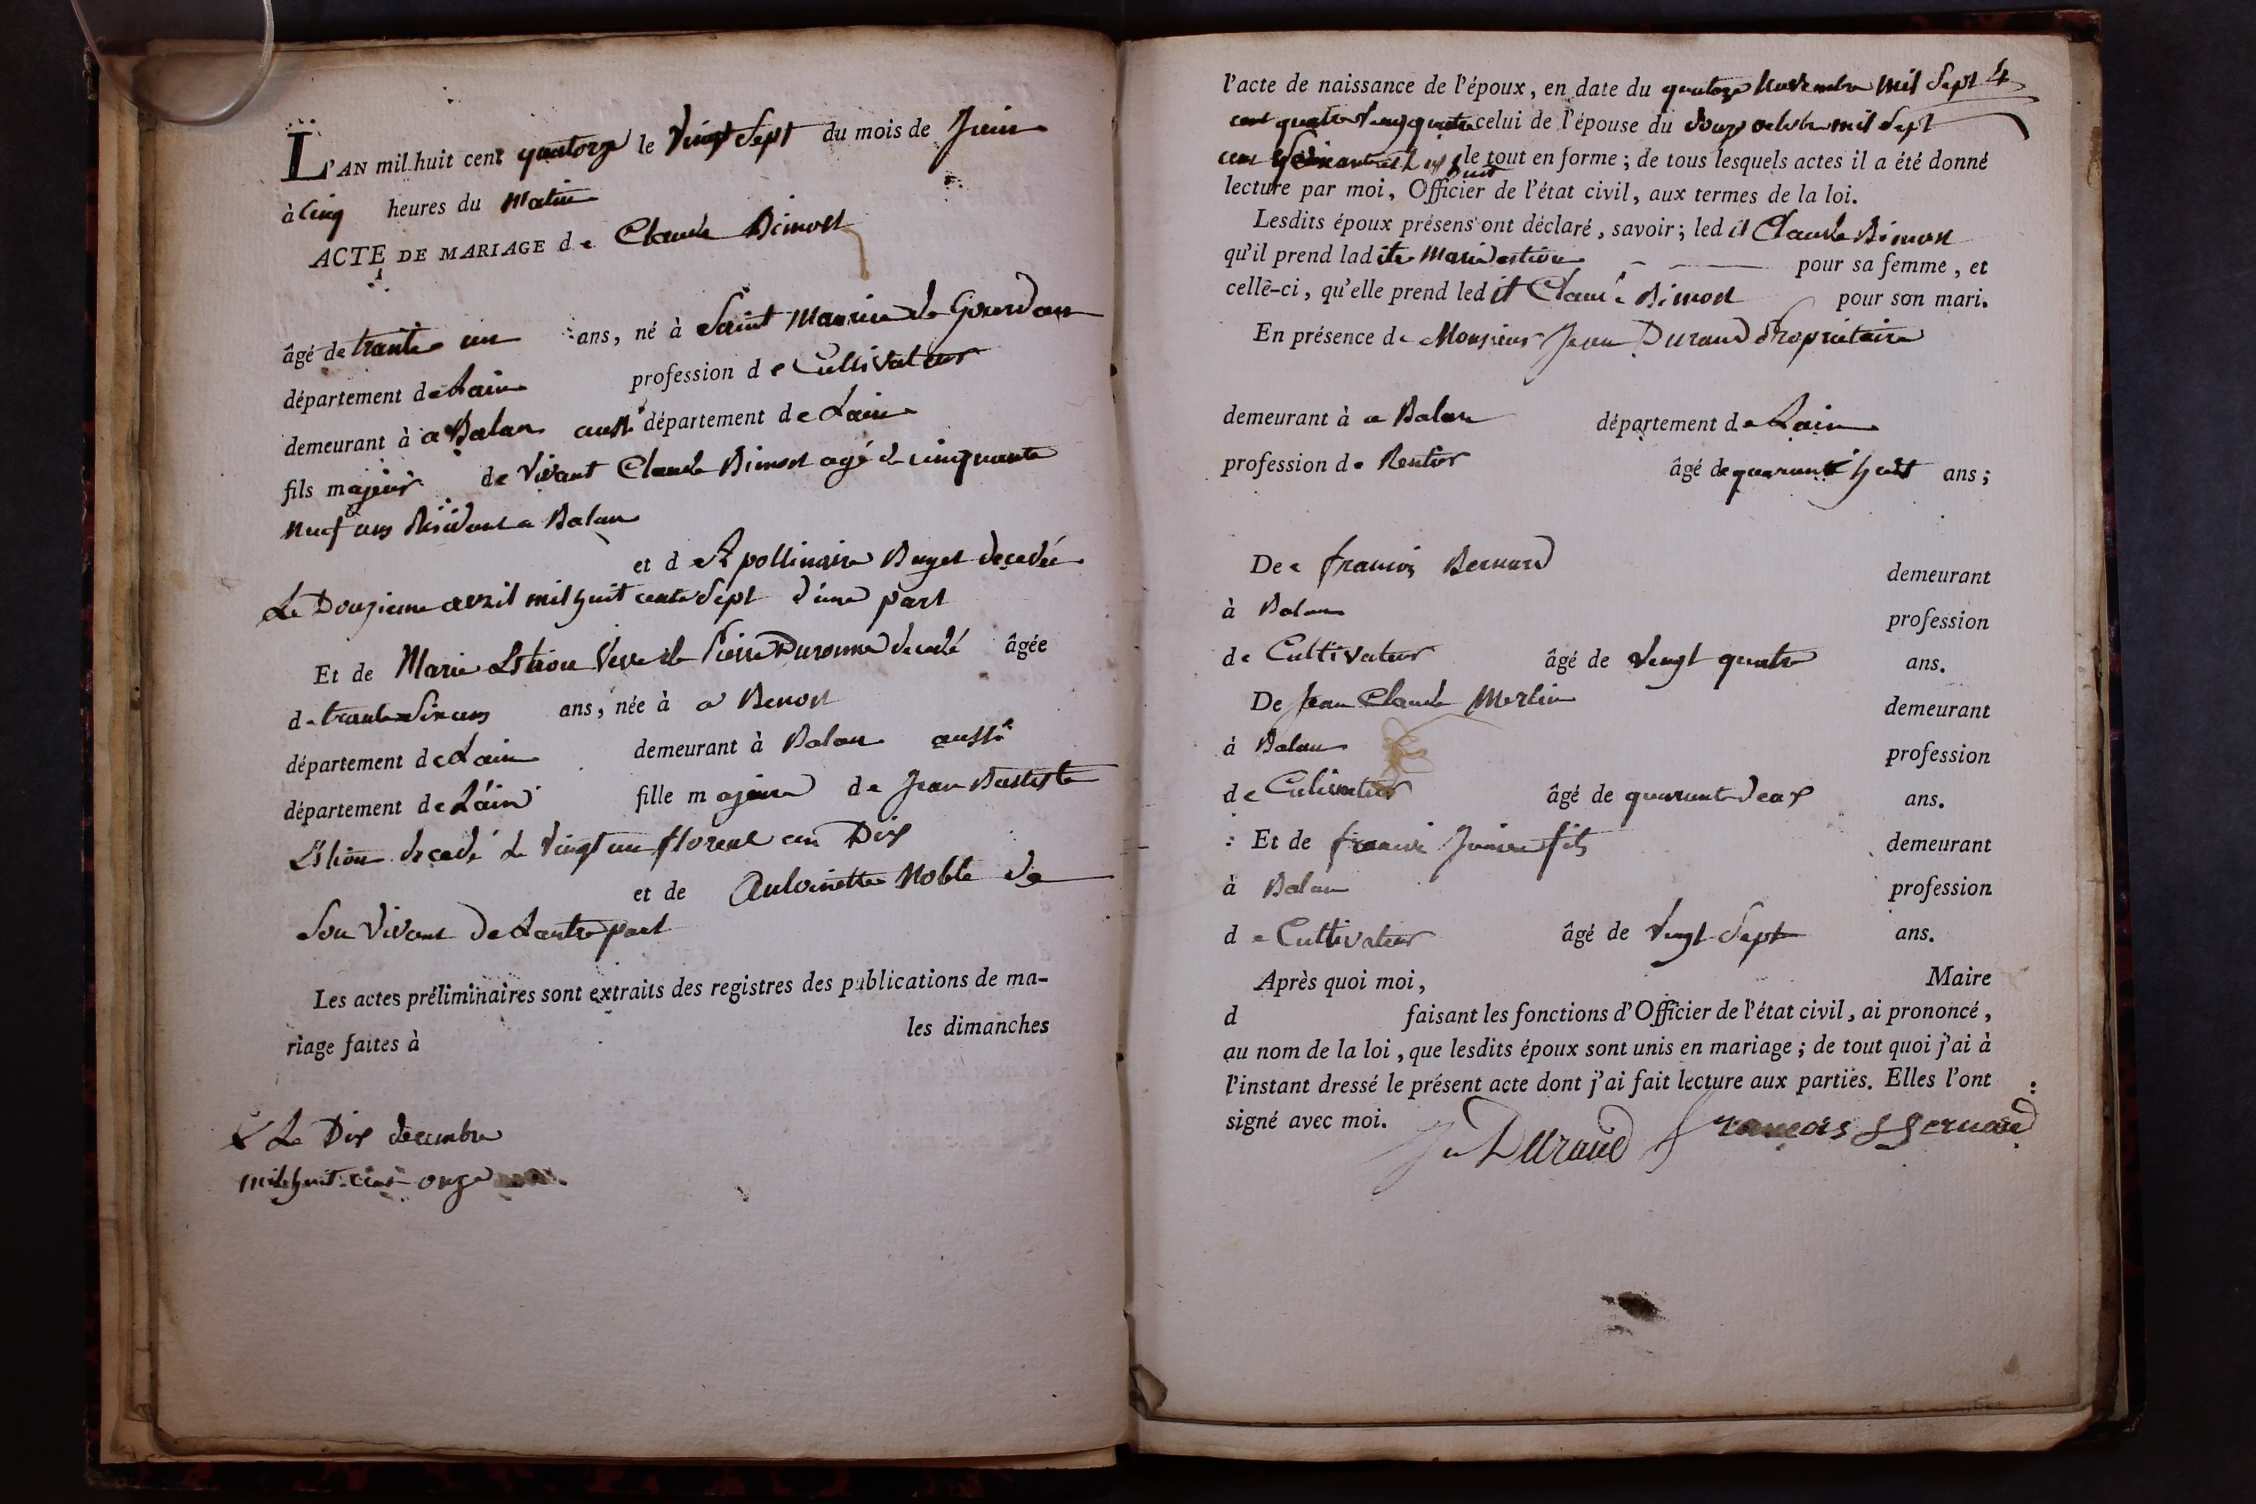 L'AN mil huit cent quatorze le vingt Sept du mois de Juin
à Cinq heures du Matin
ACTE DE MARIAGE de Claude Bimost
âgé de trante un ans, né à Saint Maurice de Gourdan
département de Lain profession de Cultivateur
demeurant à a Balan aussi département de Lain
fils majeur de vivant Claude Bimost agé de cinquante
neuf ans Résidant a Balan
et d Apollinaire Buget decedée
Le Douzieme avril mil huit cents Sept d'une part
Et de Marie Estion Veve de Pierre decedé âgée
de trante Six ans ans, née à a Benost
département de Lain demeurant à Balan aussi
département de Láin fille majeure de Jean Bastiste
Estion decedé le vingt un floreal an Dix
et de Antoinette Noble de
Son vivant de Lautre part
Les actes préliminaires sont extraits des registres des publications de ma-
riage faites à les dimanches
Le Dix decembre
mil huit cent onze
l'acte de naissance de l'époux, en date du quatorze Novembre mil Sept 4
cent quatre vingt quatre celui de l'épouse du Douze octobre mil Sept
cent huit le tout en forme ; de tous lesquels actes il a été donné
lecture par moi, Officier de l'état civil, aux termes de la loi.
Lesdits époux présens ont déclaré, savoir ; led it Claude Bimost
qu'il prend ladite Marie estion pour sa femme, et
celle-ci, qu'elle prend led it Claude Bimost pour son mari.
En présence de Monsieur Jean Durand Propriétaire
demeurant à a Balan département de Lain
profession de Rentier âgé de quarante huit ans ;
De e francois Bernard demeurant
à Balan profession
de Cultivateur âgé de vingt quatre ans.
De Jean Claude Merlin demeurant
à Balan profession
de Culivateur âgé de quarante deux ans.
Et de francois fils demeurant
à Balan profession
de Cultivateur âgé de vingt Sept ans.
Après quoi moi, Maire
d faisant les fonctions d'Officier de l'état civil, ai prononcé,
au nom de la loi, que lesdits époux sont unis en mariage ; de tout quoi j'ai à
l'instant dressé le présent acte dont j'ai fait lecture aux parties. Elles l'ont
signé avec moi.
Jn Durand francois Bernard